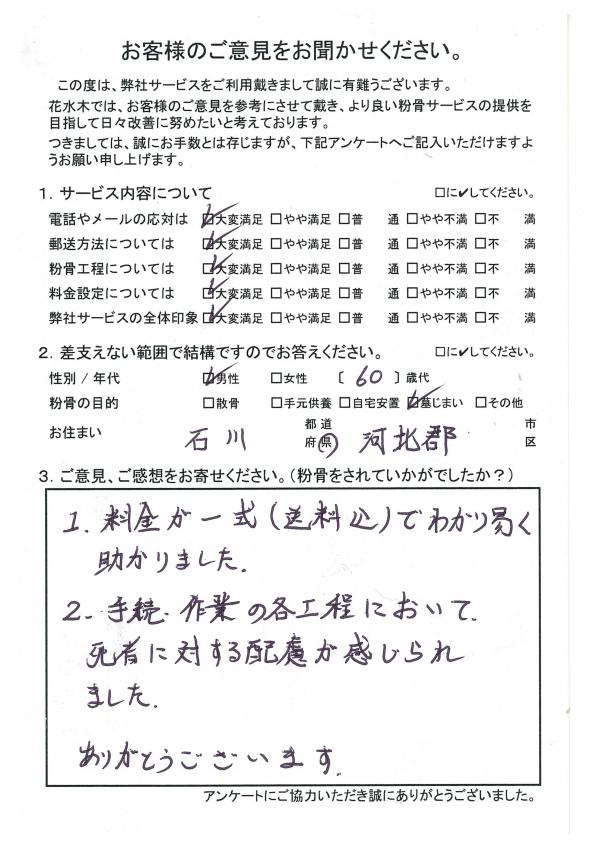 お客様のご意見をお聞かせください。
この度は、弊社サービスをご利用戴きまして誠に有難うございます。
花水木では、お客様のご意見を参考にさせて戴き、より良い粉骨サービスの提供を
目指して日々改善に努めたいと考えております。
つきましては、誠にお手数とは存じますが、下記アンケートへご記入いただけますよ
うお願い申し上げます。
1. サービス内容について □に✔してください。
電話やメールの応対は ☑大変満足 □やや満足 □普 通 □やや不満 □不 満
郵送方法については ☑大変満足 □やや満足 □普 通 □やや不満 □不 満
粉骨工程については ☑大変満足 □やや満足 □普 通 □やや不満 □不 満
料金設定については ☑大変満足 □やや満足 □普 通 □やや不満 □不 満
弊社サービスの全体印象 ☑大変満足 □やや満足 □普 通 □やや不満 □不 満
2. 差支えない範囲で結構ですのでお答えください。 □に✔してください。
性別 / 年代 ☑男性 □女性 〔 60 〕歳代
粉骨の目的 □散骨 □手元供養 □自宅安置 ☑墓じまい □その他
お住まい 石川 都 道 府 県 河北郡 市 区
3. ご意見、ご感想をお寄せください。(粉骨をされていかがでしたか?)
1. 料金が一式(送料込)でわかり易く
助かりました.
2. 手続・作業の各工程において.
死者に対する配慮が感じられ
ました.
ありがとうございます.
アンケートにご協力いただき誠にありがとうございました。